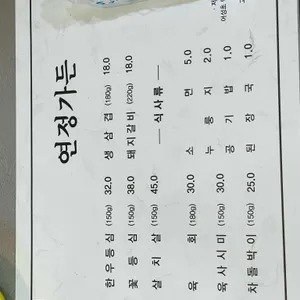 연정가든
한우등심 (150g) 32.0
꽃등심 (150g) 38.0
살치살 (150g) 45.0
육회 (180g) 30.0
육사시미 (150g) 30.0
차돌박이 (150g) 25.0
생삼겹 (180g) 18.0
돼지갈비 (220g) 18.0
— 식사류 —
소면 5.0
누룽지 2.0
공기밥 1.0
된장국 1.0
어성초